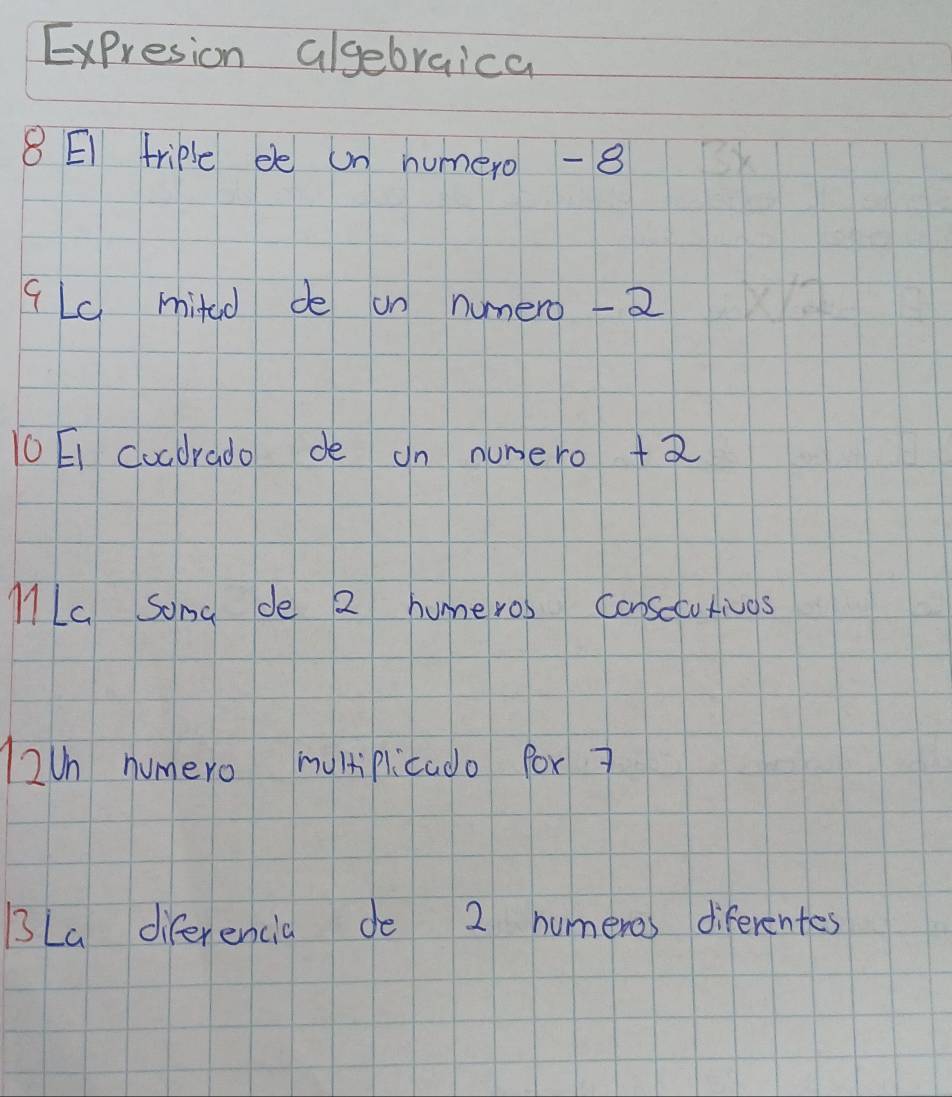 Expresion algebraica
8 El triple de un numero - 8
9 La mitad de un numero - 2
10 El cuadrado de un numero + 2
11 La suma de 2 numeros consecutivos
12 Un numero multiplicado por 7
13 La diferencia de 2 numeros diferentes